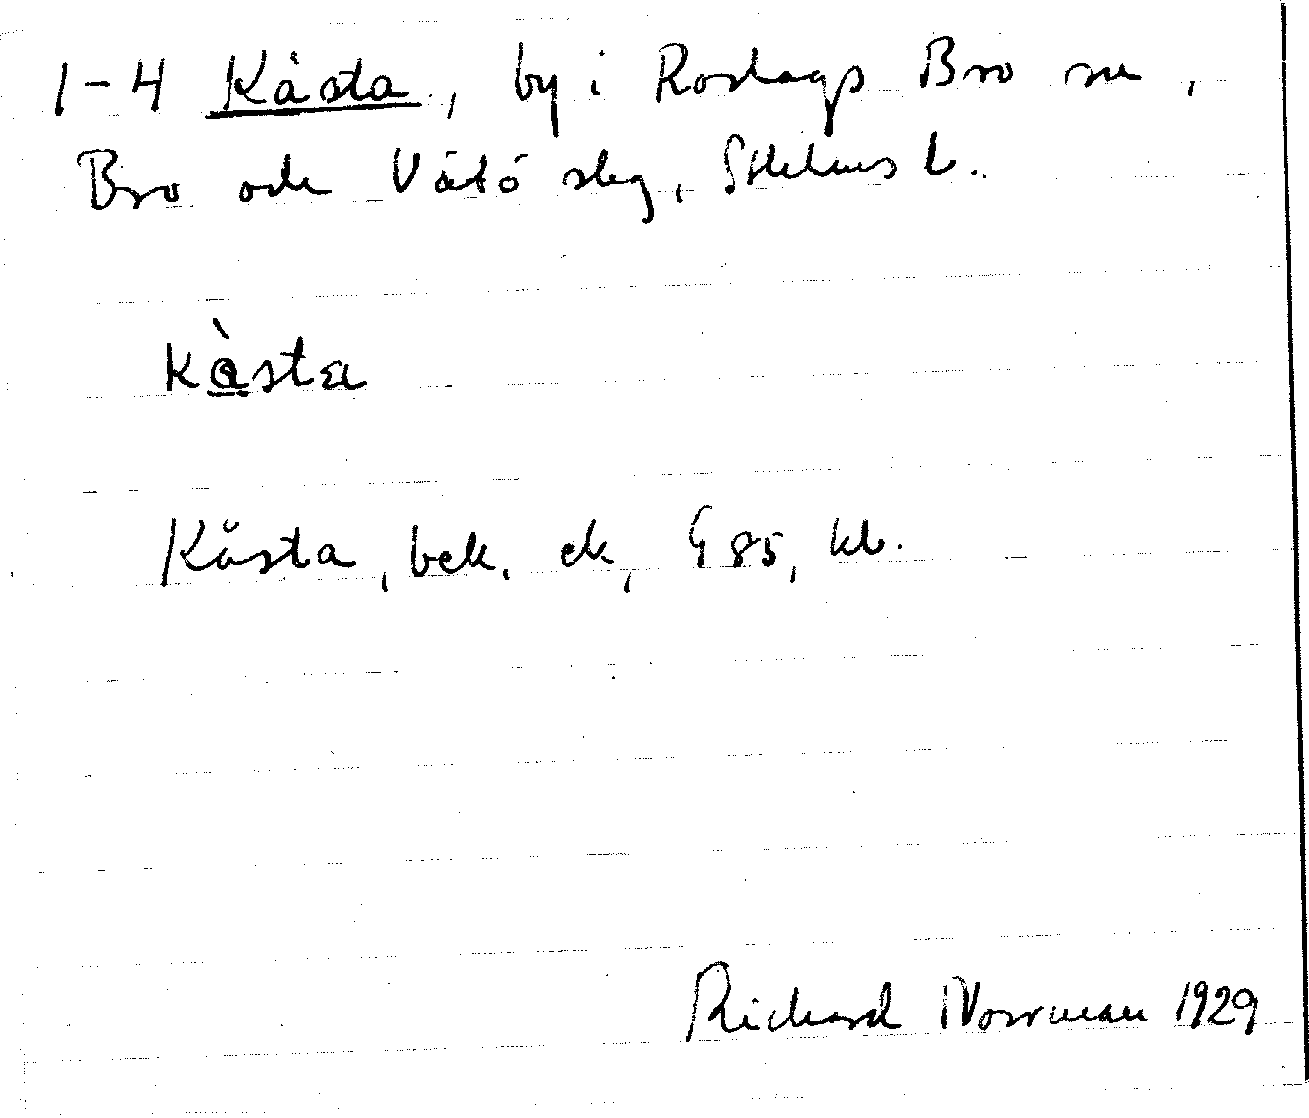 1-4 Kåsta, by i Roslags Bro sn,
Bro och Vätö skg, Sthlms l.
kå̀sta
Kåsta, bek. ek, G 85, kb.
Richard Norrman 1929